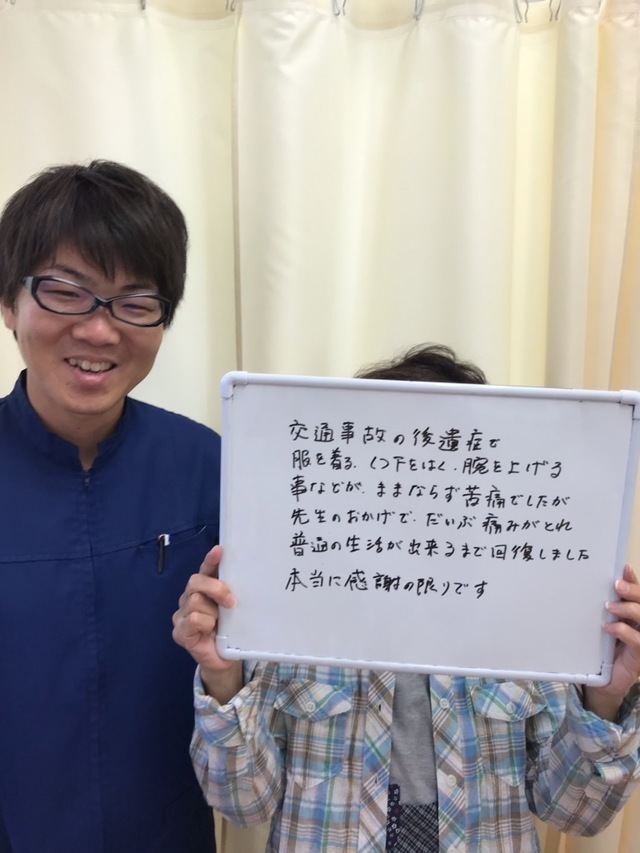 交通事故の後遺症で
服を着る、くつ下をはく、腕を上げる
事などが、ままならず苦痛でしたが
先生のおかげで、だいぶ痛みがとれ
普通の生活が出来るまで回復しました
本当に感謝の限りです